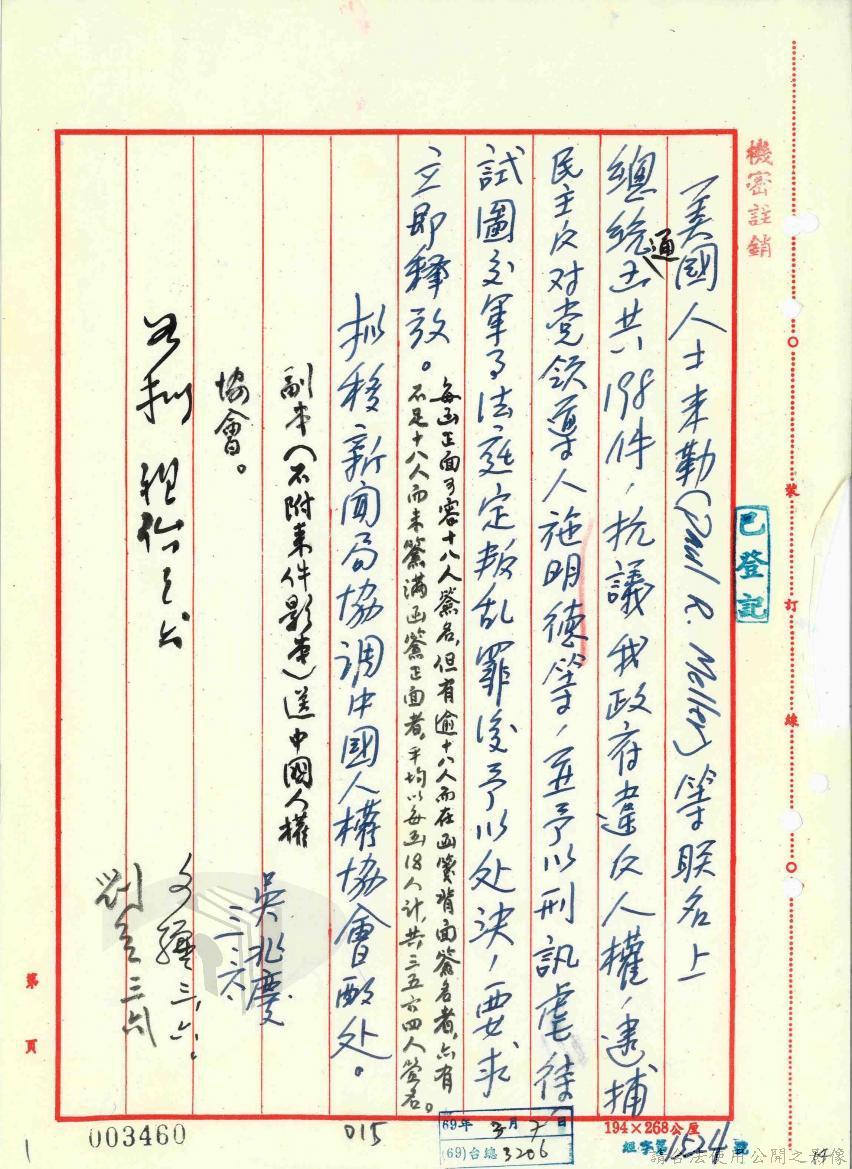 機密註銷
已登記
裝訂線
一美國人士未勒(Paul R. Meller)等联名上
總統函共198件，抗議我政府違反人權，逮捕
通
民主反对党领導人施明德等，並予以刑訊虐待
試圖交軍事法庭定叛乱罪後予以处決，要求
立即释放。
每函正面可容十八人簽名，但有逾十八人而在函箋背面簽名者，亦有
不足十八人而未簽滿函箋正面者。平均以每函18人計，共三五六四人簽名。
拟移新聞局協調中國人權協會酌处。
副本(不附來件影本)送中國人權
協會。
吳兆慶
三.六.
三.六.
三六
第 頁
003460
015
69年3月7日
(69)台總3206
194×268公厘
組字第1524號
請合法使用公開之影像